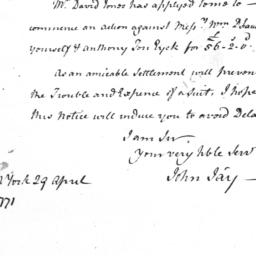 Mr. David Jones has applyed to me to —
commence an action against Messrs. Wm
yourself & Anthony Ten Eyck for £56..2..0
as an amicable Settlement will preven
the Trouble and Expence of a suit. I hope
this Notice will induce you to avoid Dela
I am Sir
Your very hble Serv
John Jay —
York 29 April
771